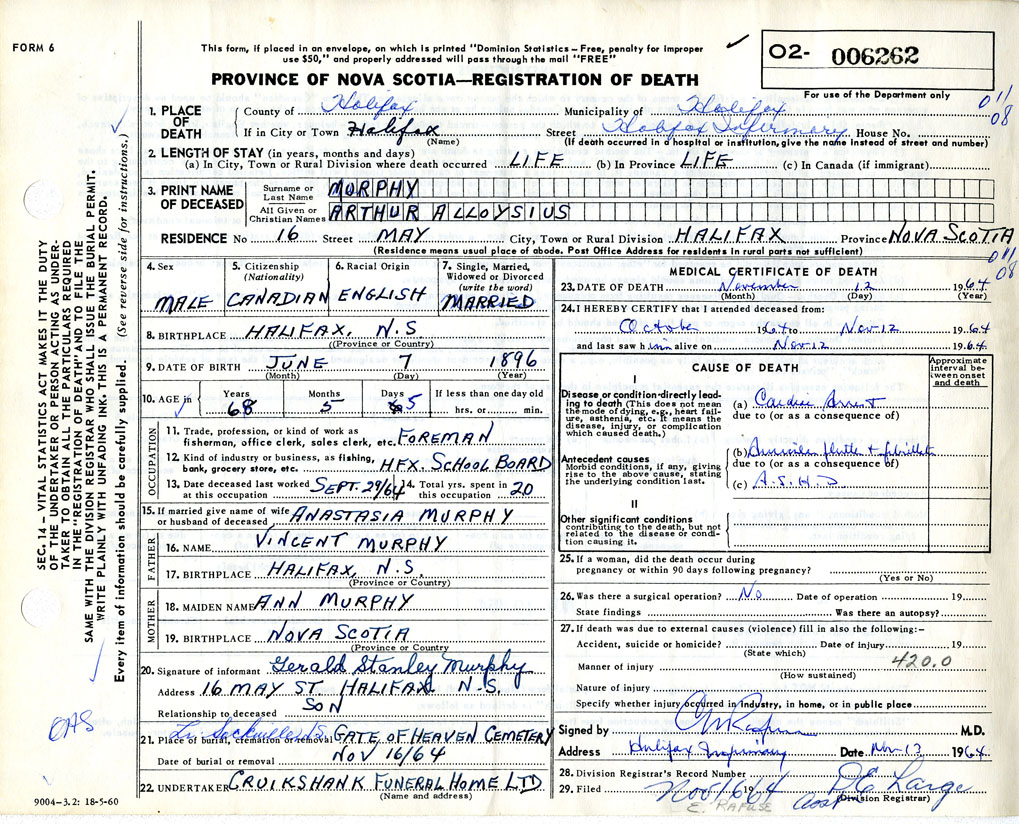 FORM 6
This form, if placed in an envelope, on which is printed "Dominion Statistics – Free, penalty for improper
use $50," and properly addressed will pass through the mail "FREE"
✓
O2- 006262
For use of the Department only
PROVINCE OF NOVA SCOTIA—REGISTRATION OF DEATH
011
08
1. PLACE OF DEATH
County of Halifax Municipality of Halifax
If in City or Town Halifax (Name) Street Halifax Infirmary House No.
(If death occurred in a hospital or institution, give the name instead of street and number)
2. LENGTH OF STAY (in years, months and days)
(a) In City, Town or Rural Division where death occurred LIFE (b) In Province LIFE (c) In Canada (if immigrant)
3. PRINT NAME OF DECEASED
Surname or Last Name MURPHY
All Given or Christian Names ARTHUR ALLOYSIUS
RESIDENCE No 16 Street MAY City, Town or Rural Division HALIFAX Province NOVA SCOTIA
(Residence means usual place of abode. Post Office Address for residents in rural parts not sufficient)
011
08
4. Sex MALE
5. Citizenship (Nationality) CANADIAN
6. Racial Origin ENGLISH
7. Single, Married, Widowed or Divorced (write the word) MARRIED
8. BIRTHPLACE HALIFAX, N.S
(Province or Country)
9. DATE OF BIRTH JUNE 7 1896
(Month) (Day) (Year)
10. AGE in Years 68 Months 5 Days 5 If less than one day old hrs. or min.
OCCUPATION
11. Trade, profession, or kind of work as
fisherman, office clerk, sales clerk, etc. FOREMAN
12. Kind of industry or business, as fishing,
bank, grocery store, etc. HFX. SCHOOL BOARD
13. Date deceased last worked at this occupation SEPT. 29/64
14. Total yrs. spent in this occupation 20
15. If married give name of wife
or husband of deceased ANASTASIA MURPHY
FATHER
16. NAME VINCENT MURPHY
17. BIRTHPLACE HALIFAX, N.S.
(Province or Country)
MOTHER
18. MAIDEN NAME ANN MURPHY
19. BIRTHPLACE NOVA SCOTIA
(Province or Country
20. Signature of informant Gerald Stanley Murphy
Address 16 MAY ST. HALIFAX N.S.
Relationship to deceased SON
21. Place of burial, cremation or removal GATE OF HEAVEN CEMETERY
Date of burial or removal NOV 16/64
22. UNDERTAKER CRUIKSHANK FUNERAL HOME LTD
(Name and address)
9004–3.2: 18-5-60
MEDICAL CERTIFICATE OF DEATH
23. DATE OF DEATH November 12 1964
(Month) (Day) (Year)
24. I HEREBY CERTIFY that I attended deceased from:
October 1964 to Nov 12 1964
and last saw him alive on Nov 12 1964
CAUSE OF DEATH
Approximate interval between onset and death
I
Disease or condition directly leading to death (This does not mean
the mode of dying, e.g., heart failure, asthenia, etc. It means the
disease, injury, or complication which caused death.)
(a) Cardiac Arrest
due to (or as a consequence of)
Antecedent causes
Morbid conditions, if any, giving rise to the above cause, stating
the underlying condition last.
(b) Auricular flutter + fibrillation
due to (or as a consequence of)
(c) A.S.H.D
II
Other significant conditions
contributing to the death, but not related to the disease or condition causing it.
25. If a woman, did the death occur during
pregnancy or within 90 days following pregnancy?
(Yes or No)
26. Was there a surgical operation? No Date of operation 19
State findings Was there an autopsy?
27. If death was due to external causes (violence) fill in also the following:–
Accident, suicide or homicide? Date of injury 19
(State which)
Manner of injury 420.0
(How sustained)
Nature of injury
Specify whether injury occurred in industry, in home, or in public place
Signed by M.D.
Address Halifax Infirmary Date Nov 13 1964
28. Division Registrar's Record Number
29. Filed Nov 16 1964 D E Large
(Division Registrar)
E. RAFUSE
SEC. 14 – VITAL STATISTICS ACT MAKES IT THE DUTY
OF THE UNDERTAKER OR PERSON ACTING AS UNDER-
TAKER TO OBTAIN ALL THE PARTICULARS REQUIRED
IN THE "REGISTRATION OF DEATH" AND TO FILE THE
SAME WITH THE DIVISION REGISTRAR WHO SHALL ISSUE THE BURIAL PERMIT.
WRITE PLAINLY WITH UNFADING INK. THIS IS A PERMANENT RECORD.
Every item of information should be carefully supplied. (See reverse side for instructions.)